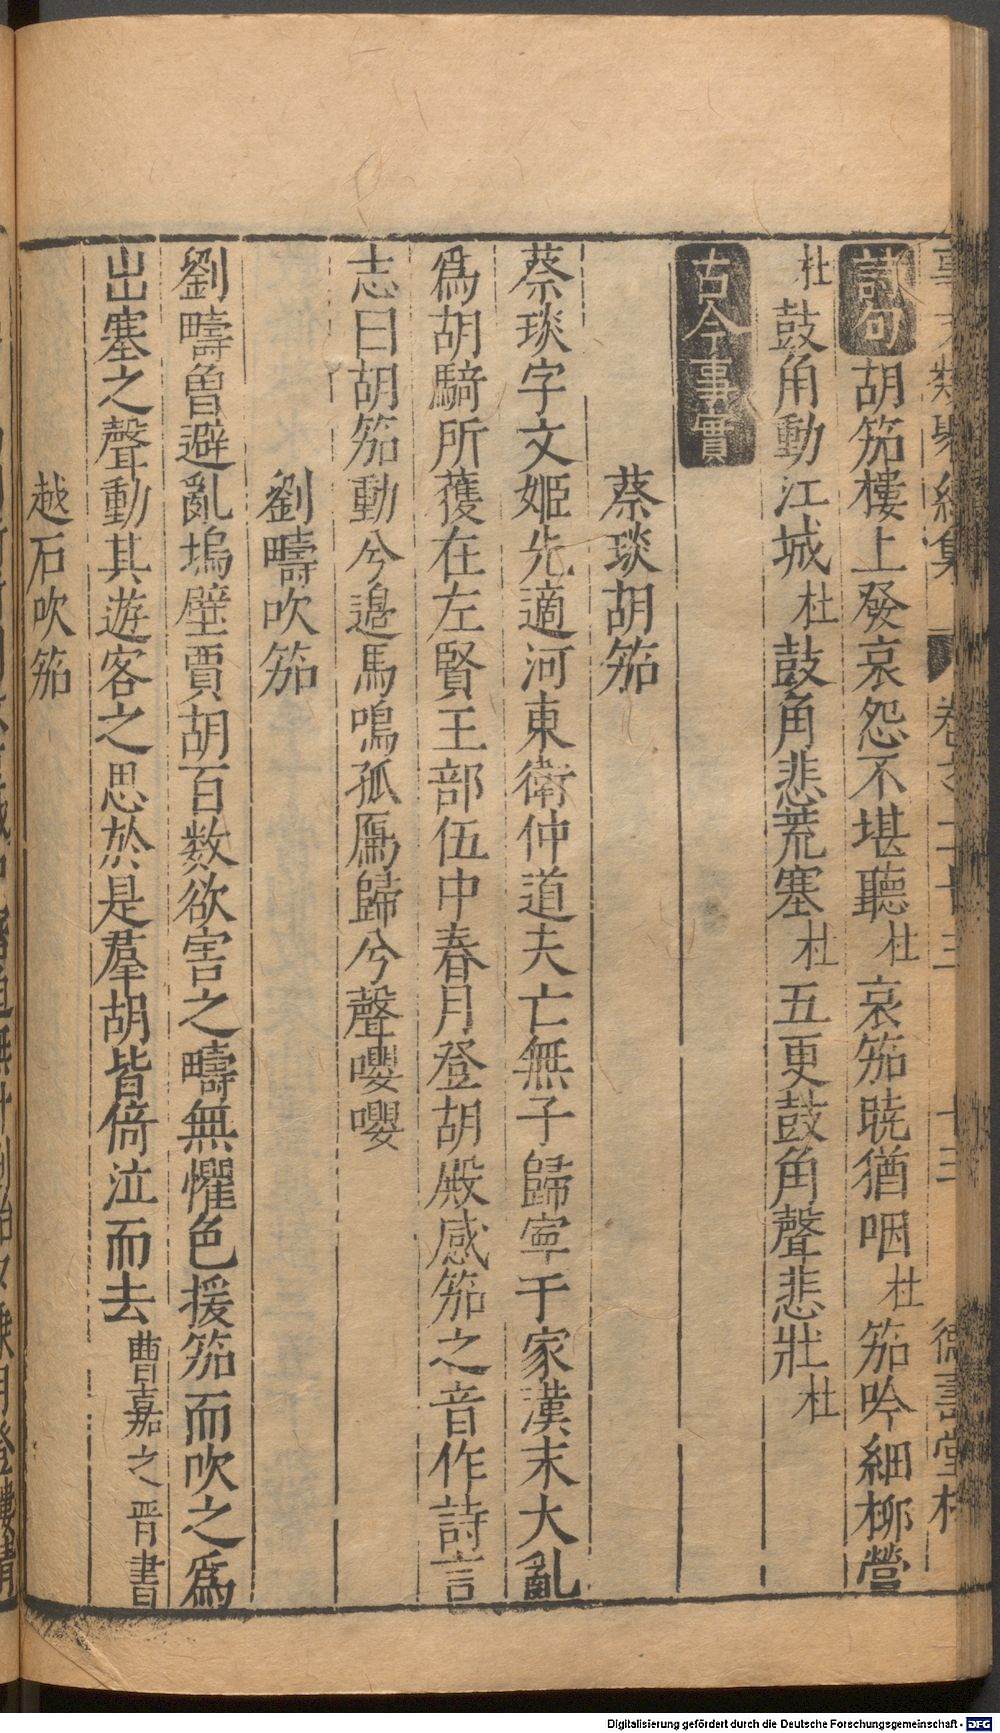 詩句胡笳樓上發哀怨不堪聽杜哀笳曉猶咽杜笳吟細柳營
杜鼓角動江城杜鼓角悲荒塞杜五更鼓角聲悲壯杜
古今事實
蔡琰胡笳
蔡琰字文姬先適河東衛仲道夫亡無子歸寧于家漢末大亂
爲胡騎所獲在左賢王部伍中春月登胡殿感笳之音作詩言
志曰胡笳動兮邉馬鳴孤鴈歸兮聲嚶嚶
劉疇吹笳
劉疇曾避亂塢壁賈胡百数欲害之疇無懼色援笳而吹之爲
出塞之聲動其遊客之思於是羣胡皆倚泣而去曹嘉之晋書
越石吹笳
Digitalisierung gefördert durch die Deutsche Forschungsgemeinschaft - DFG